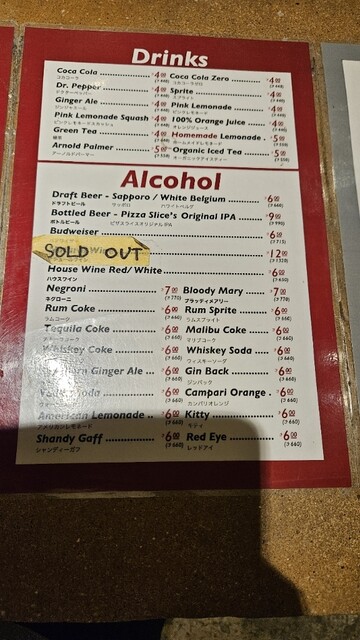 Drinks
Coca Cola $4.00 Coca Cola Zero $4.00
コカコーラ
Dr. Pepper $4.00 Sprite $4.00
ドクターペッパー スプライト
Ginger Ale $4.00 Pink Lemonade $4.00
ジンジャエール ピンクレモネード
Pink Lemonade Squash $4.00 100% Orange Juice $4.00
ピンクレモネードスカッシュ オレンジジュース
Green Tea $4.00 Homemade Lemonade
緑茶 ホームメイドレモネード
Arnold Palmer $5.00 Organic Iced Tea $5.00
アーノルドパーマー オーガニックアイスティー
Alcohol
Draft Beer - Sapporo / White Belgium $6.00
ドラフトビール サッポロ / ホワイトベルグ (¥660)
Bottled Beer - Pizza Slice's Original IPA $9.00
ボトルビール ピザスライスオリジナルIPA (¥990)
Budweiser
SOLD OUT $12.00
House Wine Red/White $6.00
ハウスワイン (¥660)
Negroni $7.00 Bloody Mary $7.00
ネグローニ (¥770) ブラッディメアリー (¥770)
Rum Coke $6.00 Rum Sprite $6.00
ラムコーク (¥660) ラムスプライト (¥660)
Tequila Coke $6.00 Malibu Coke $6.00
(¥660) マリブコーク (¥660)
Whiskey Coke $6.00 Whiskey Soda $6.00
(¥660) ウィスキーソーダ (¥660)
Ginger Ale $6.00 Gin Back $6.00
(¥660) ジンバック (¥660)
$6.00 Campari Orange $6.00
(¥660) カンパリオレンジ (¥660)
American Lemonade $6.00 Kitty $6.00
アメリカンレモネード (¥660) キティ (¥660)
Shandy Gaff $6.00 Red Eye $6.00
シャンディーガフ (¥660) レッドアイ (¥660)